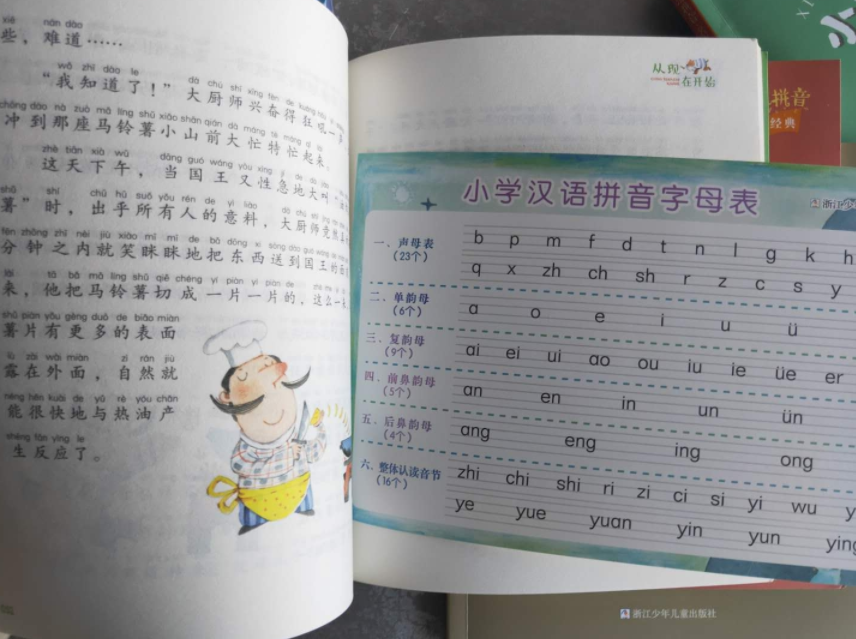 xiē nán dào
些，难道……
wǒ zhī dào le
“我知道了！”大厨师兴奋得狂吼一声
chōng dào nà zuò mǎ líng shǔ xiǎo shān qián dà máng tè máng qǐ lái
冲到那座马铃薯小山前大忙特忙起来。
zhè tiān xià wǔ dāng guó wáng yòu xìng jí de dà jiào
这天下午，当国王又性急地大叫
shǔ shí chū hū suǒ yǒu rén de yì liào
薯”时，出乎所有人的意料，大厨师竟然
fēn zhōng zhī nèi jiù xiào mī mī de bǎ dōng xi sòng dào guó wáng de miàn
分钟之内就笑眯眯地把东西送到国王的面
lái tā bǎ mǎ líng shǔ qiē chéng yí piàn yí piàn de
来，他把马铃薯切成一片一片的，这么一来
shǔ piàn yǒu gèng duō de biǎo miàn
薯片有更多的表面
lù zài wài miàn zì rán jiù
露在外面，自然就
néng hěn kuài de yǔ rè yóu chǎn
能很快地与热油产
shēng fǎn yìng le
生反应了。
从现
在开始
拼音
经典
小学汉语拼音字母表
一、声母表
(23个)
b p m f d t n l g k h
q x zh ch sh r z c s y
二、单韵母
(6个)
a o e i u ü
三、复韵母
(9个)
ai ei ui ao ou iu ie üe er
四、前鼻韵母
(5个)
an en in un ün
五、后鼻韵母
(4个)
ang eng ing ong
六、整体认读音节
(16个)
zhi chi shi ri zi ci si yi wu
ye yue yuan yin yun ying
浙江少年儿童出版社